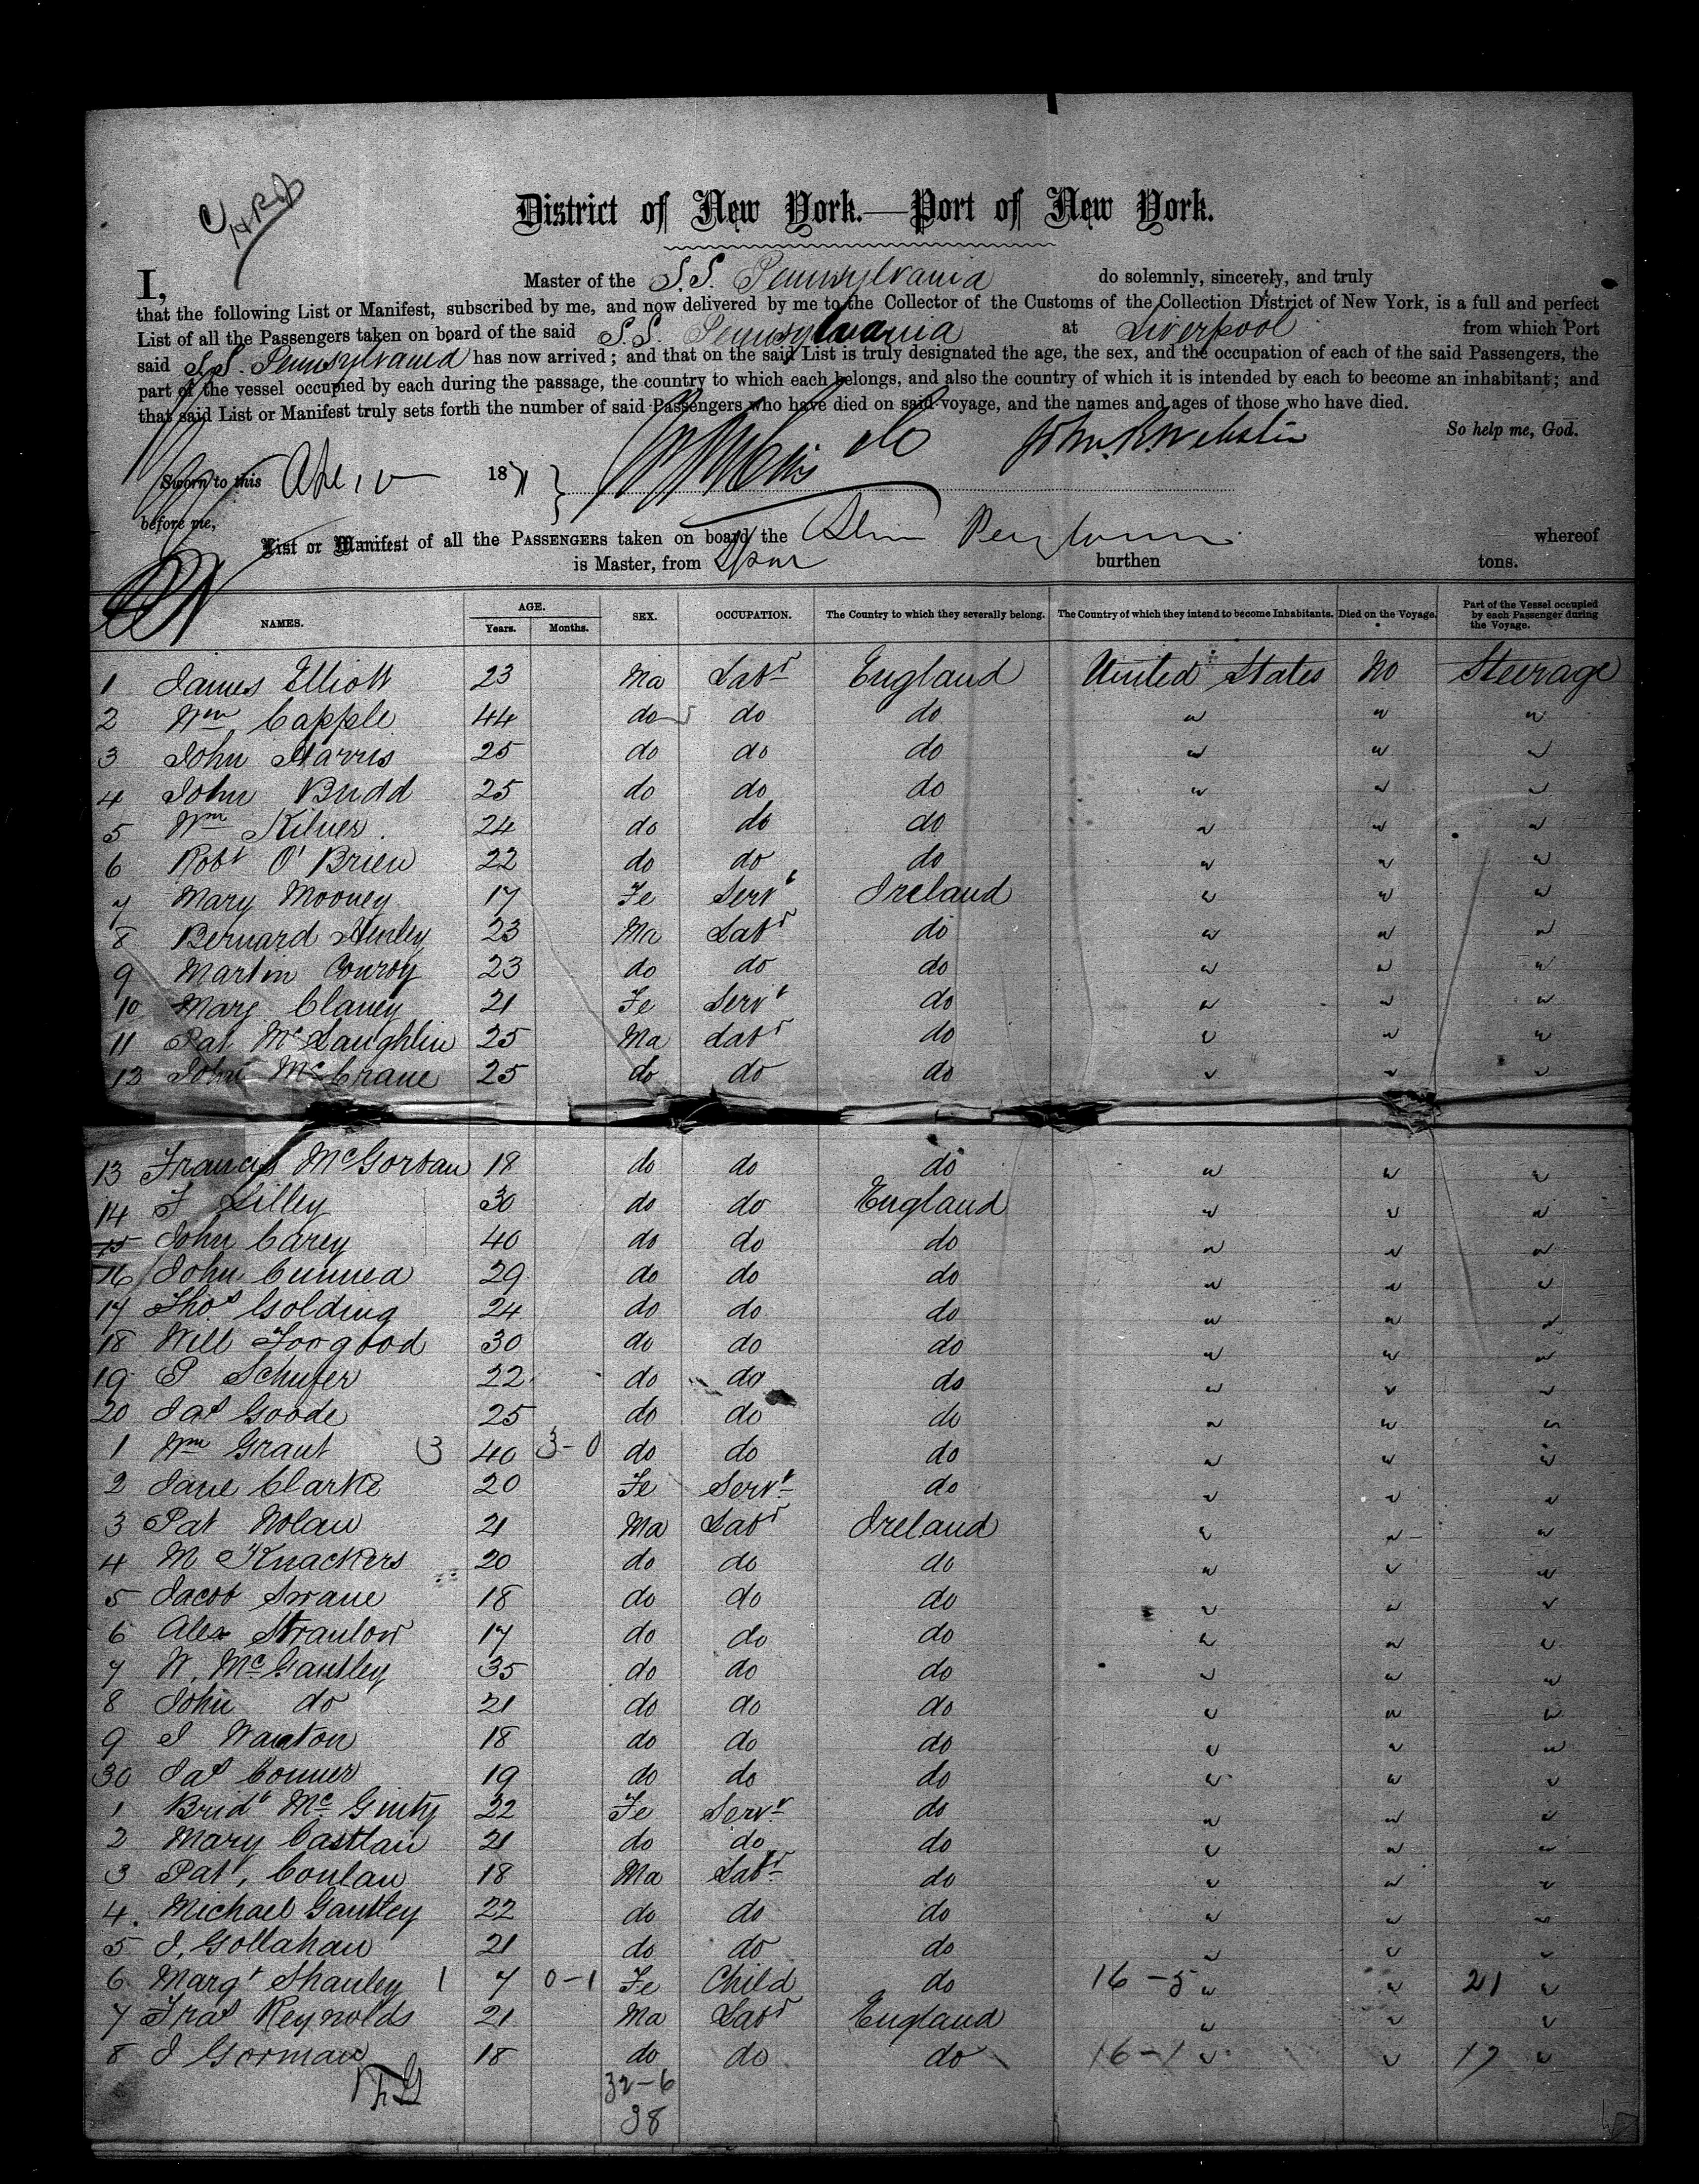 District of New York.—Port of New York.
I, Master of the S.S. Pennsylvania do solemnly, sincerely, and truly
that the following List or Manifest, subscribed by me, and now delivered by me to the Collector of the Customs of the Collection District of New York, is a full and perfect
List of all the Passengers taken on board of the said S.S. Pennsylvania at Liverpool from which Port
said S.S. Pennsylvania has now arrived; and that on the said List is truly designated the age, the sex, and the occupation of each of the said Passengers, the
part of the vessel occupied by each during the passage, the country to which each belongs, and also the country of which it is intended by each to become an inhabitant; and
that said List or Manifest truly sets forth the number of said Passengers who have died on said voyage, and the names and ages of those who have died.
So help me, God.
Sworn to this 1871
before me,
List or Manifest of all the PASSENGERS taken on board the whereof
is Master, from burthen tons.
NAMES. AGE. Years. Months. SEX. OCCUPATION. The Country to which they severally belong. The Country of which they intend to become Inhabitants. Died on the Voyage. Part of the Vessel occupied by each Passenger during the Voyage.
1 James Elliott 23 Ma Labr England United States No Steerage
2 Wm Capple 44 do do do " " "
3 John Harris 25 do do do " " "
4 John Budd 25 do do do " " "
5 Wm Kilner 24 do do do " " "
6 Robt O'Brien 22 do do do " " "
7 Mary Mooney 17 Fe Servt Ireland " " "
8 Bernard Henley 23 Ma Labr do " " "
9 Martin Conroy 23 do do do " " "
10 Mary Clancy 21 Fe Servt do " " "
11 Pat McLaughlin 25 Ma Labr do " " "
12 John McCrane 25 do do do " " "
13 Francis McGortan 18 do do do " " "
14 F Lilley 30 do do England " " "
15 John Carey 40 do do do " " "
16 John Cunnea 29 do do do " " "
17 Thos Golding 24 do do do " " "
18 Will Toogood 30 do do do " " "
19 P Schufer 22 do do do " " "
20 Jas Goode 25 do do do " " "
1 Wm Grant 3 40 3-0 do do do " " "
2 Jane Clarke 20 Fe Servt do " " "
3 Pat Nolan 21 Ma Labr Ireland " " "
4 M Knackers 20 do do do " " "
5 Jacob Swane 18 do do do " " "
6 Alex Stranlow 17 do do do " " "
7 W. McGautley 35 do do do " " "
8 John do 21 do do do " " "
9 J Wanton 18 do do do " " "
30 Jas Conner 19 do do do " " "
1 Bridt McGinty 22 Fe Servt do " " "
2 Mary Castlan 21 do do do " " "
3 Patk. Conlan 18 Ma Labr do " " "
4. Michael Gautley 22 do do do " " "
5 J. Gollahan 21 do do do " " "
6 Margt Shanley 1 7 0-1 Fe Child do 16-5 " " 21 "
7 Fras Reynolds 21 Ma Labr England " " "
8 J Gorman 18 do do do 16-1 " " 17 "
32-6
38